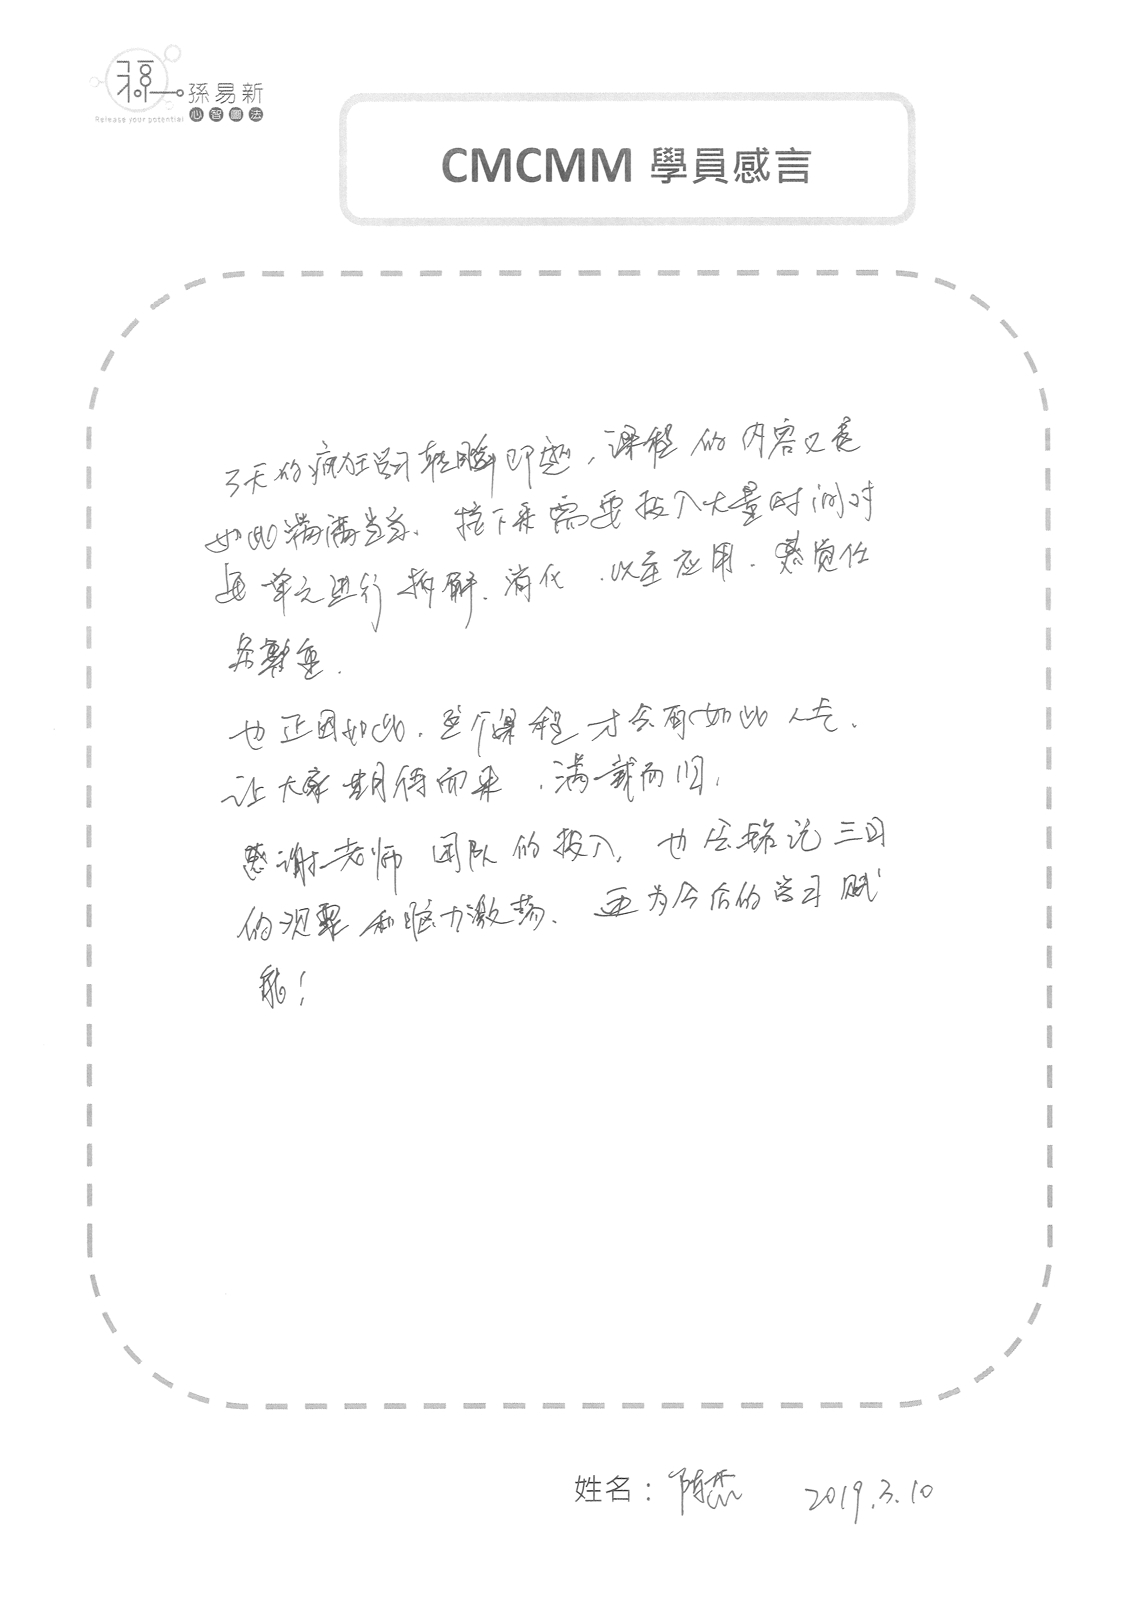 孫易新
心智圖法
Release your potential
CMCMM 學員感言
3天的疯狂学习转瞬即逝，课程的内容又是
如此满满当当、接下来需要投入大量时间对
每单元进行拆解、消化，以至应用。感觉任
务艰重.
也正因如此，整个课程才会有如此人气，
让大家期待而来，满载而归，
感谢老师团队的投入，也会铭记三日
的观摩和脑力激荡、更为今后的学习赋
能！
姓名：陈杰 2019.3.10